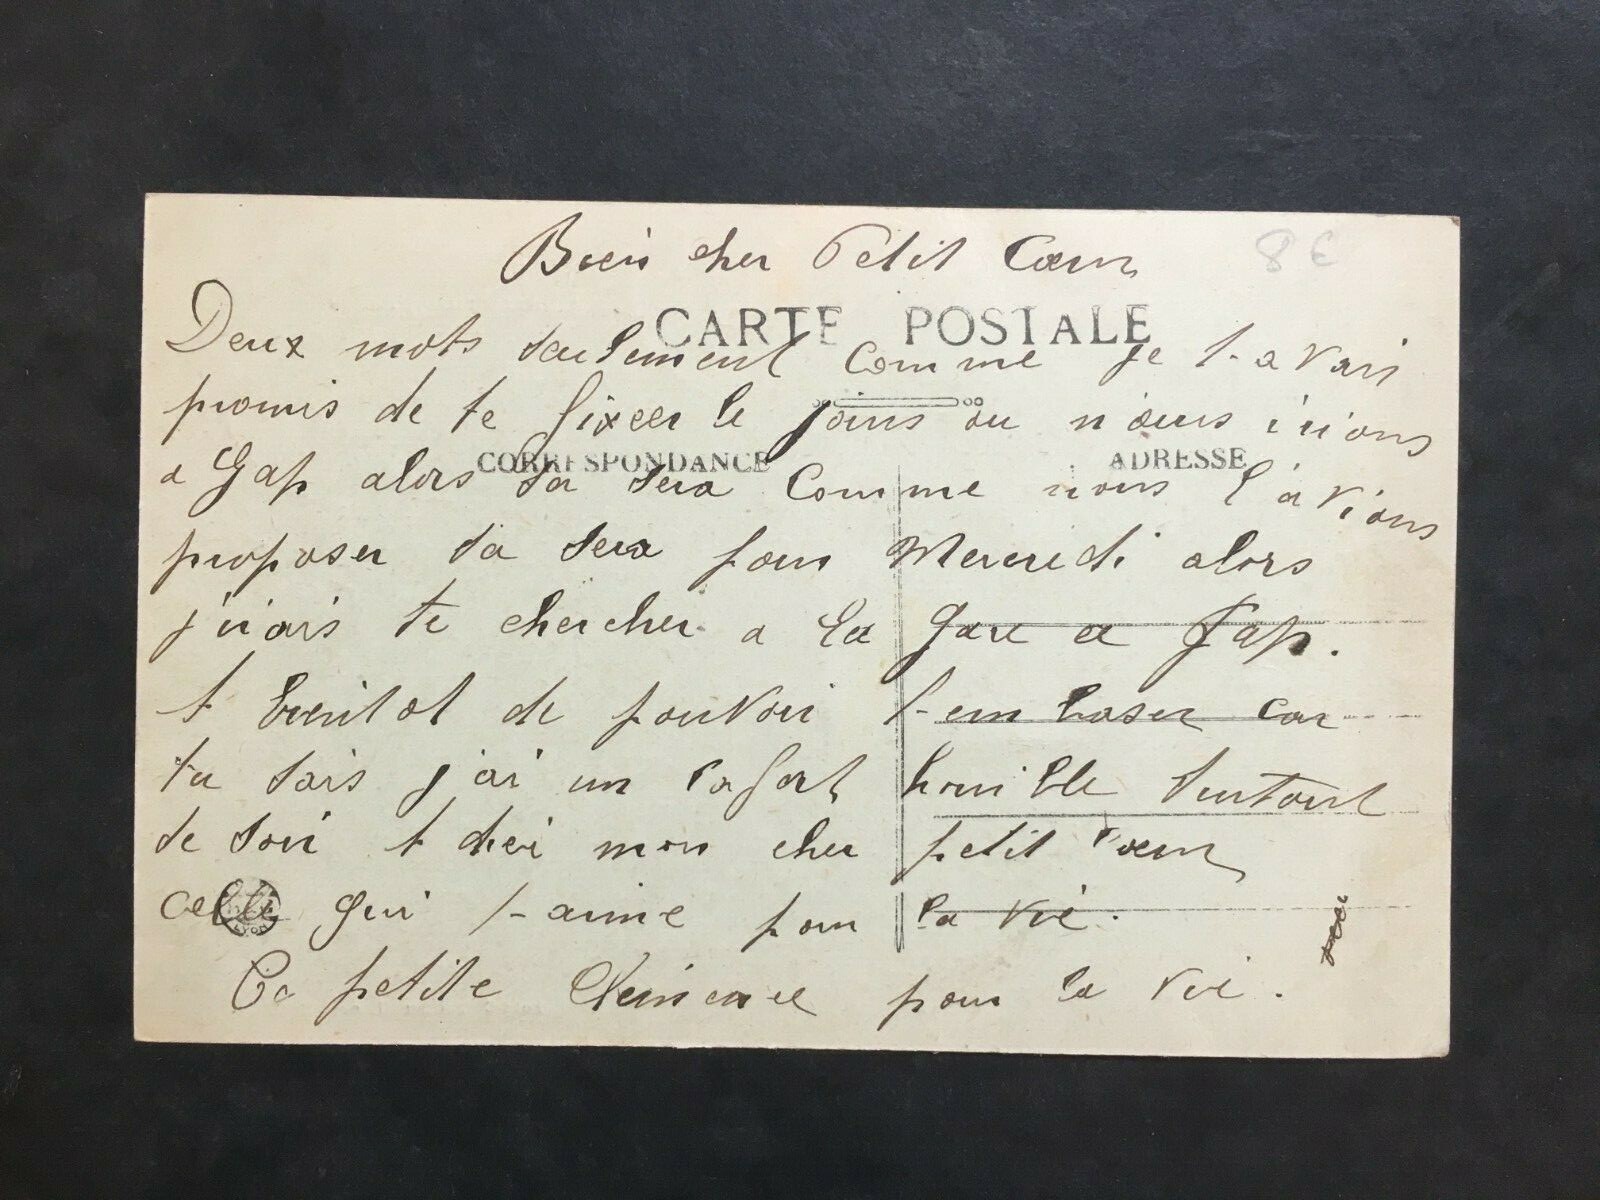 Bien cher Petit Cœur
8 €
CARTE POSTALE
Deux mots seulement comme je t-avais
promis de te fixeer le jours ou nous irions
CORRESPONDANCE
ADRESSE
a Gap alors sa sera comme nous l'avions
proposer sa sera pour Mercredi alors
j'irais te chercher a la gare a Gap.
t bientot de pouvoir t-embraser car
tu sais j'ai un cafart horrible surtout
se soir t dieu mon cher petit cœur
celle qui t-aime pour la vie.
Ta petite Clemence pour la vie.